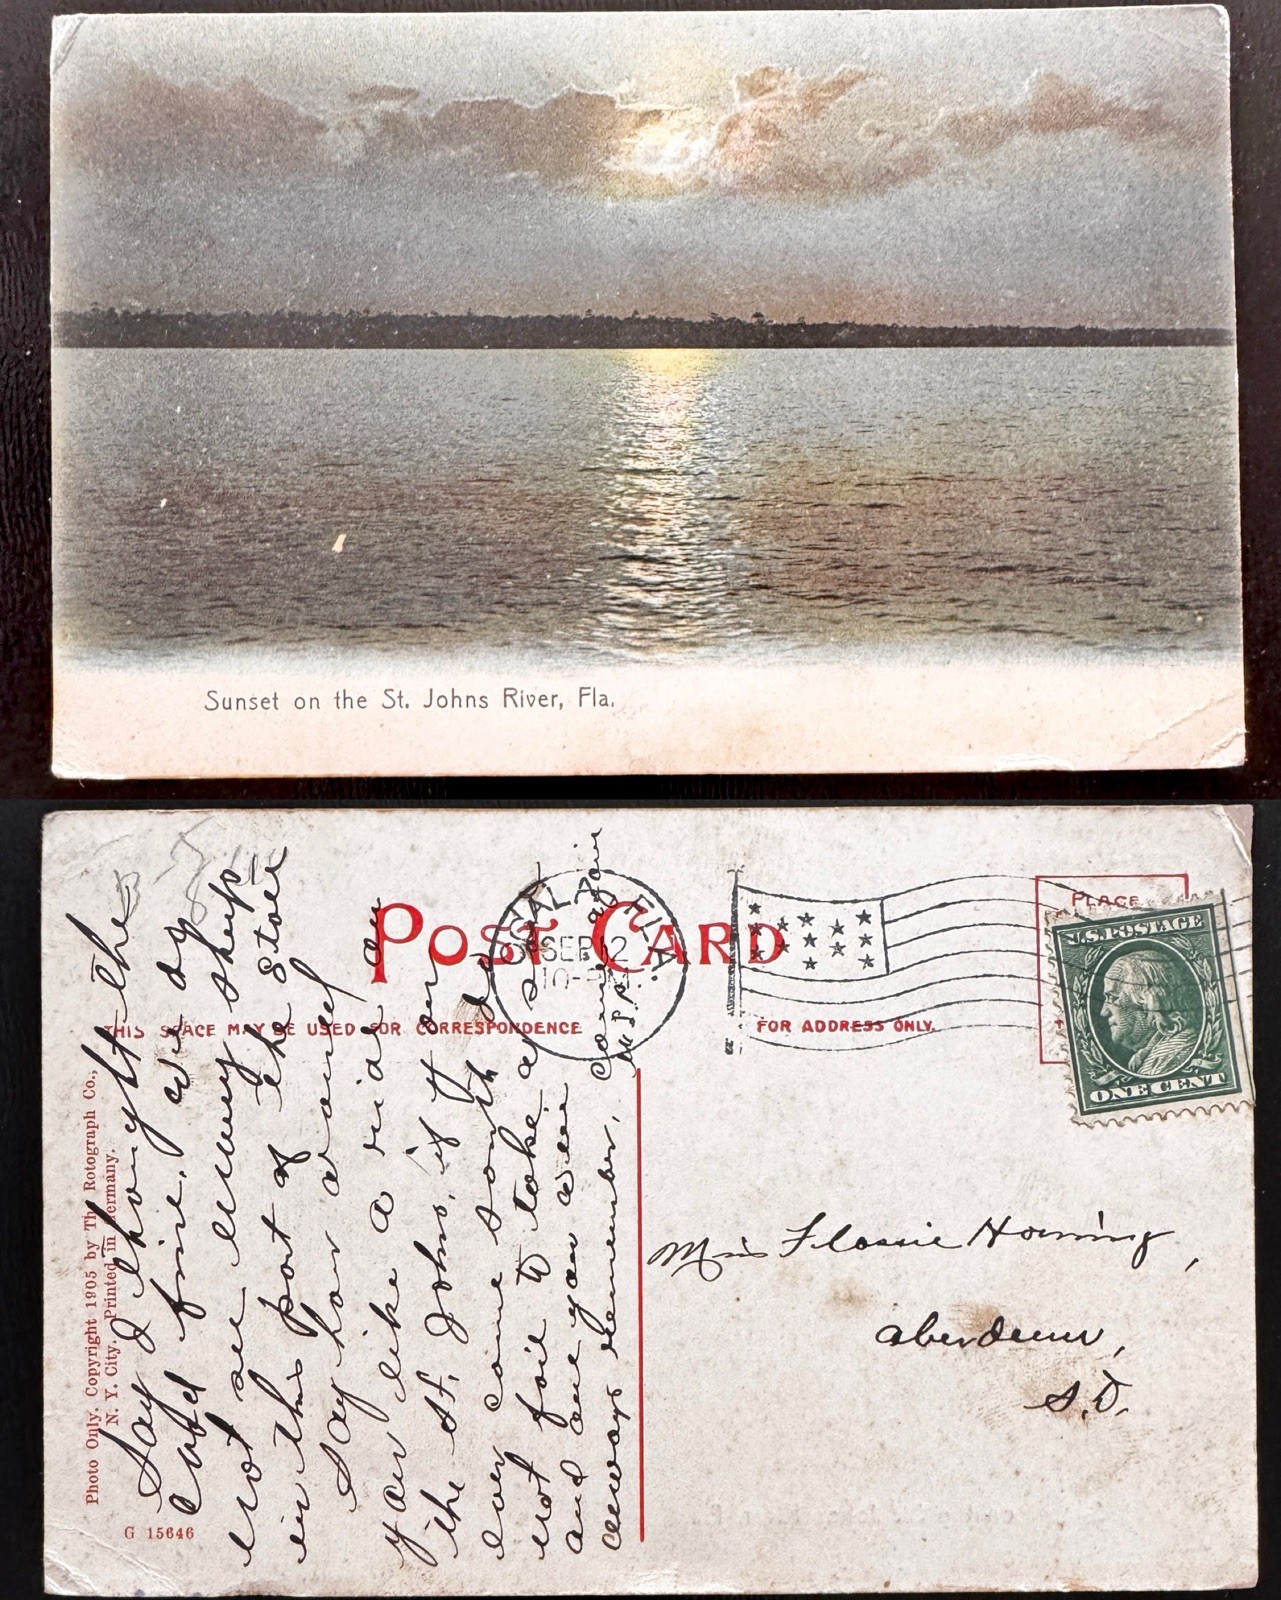 Sunset on the St. Johns River, Fla.
POST CARD
THIS SPACE MAY BE USED FOR CORRESPONDENCE
FOR ADDRESS ONLY.
PLACE
U.S. POSTAGE
ONE CENT
FLA.
SEP 12
Photo Only, Copyright 1905 by The Rotograph Co.,
N. Y. City. Printed in Germany.
G 15646
Say I thought the
fine. we do
not see many sheep
in this part of the
Say how would
you like a ride on
the St. Johns, if you
ever come south do
not fail to take a
and one you will
always remember, come again
Miss Flossie
Aberdeen,
S.D.